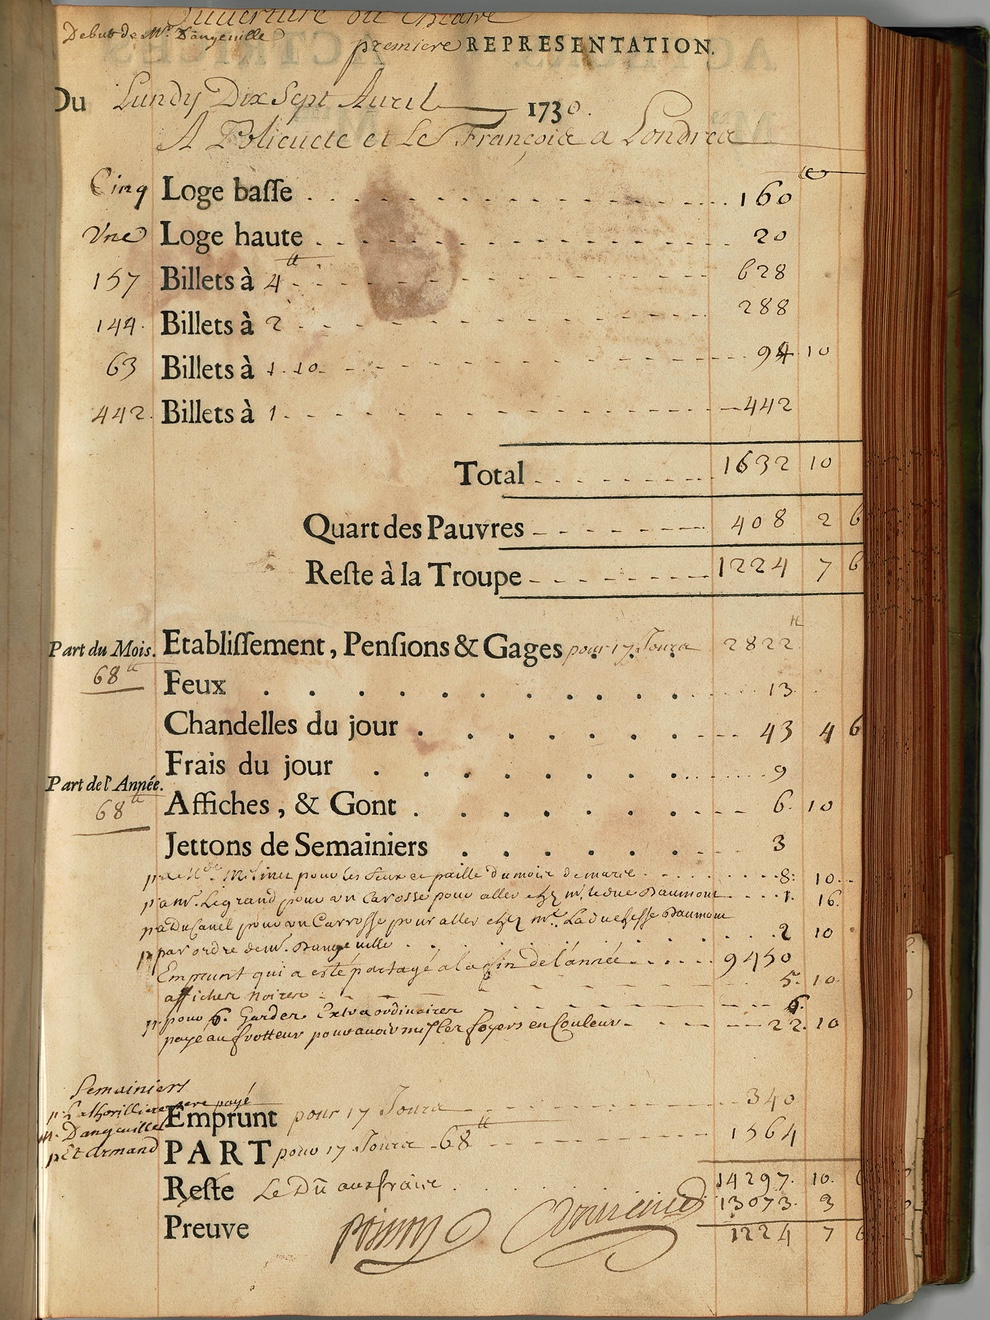 Ouverture du theatre
Debut de Mr. Dangeuille
premiere REPRESENTATION.
Du Lundy Dix Sept Auril 1730.
A Policucte et Le François a Londres
Cinq Loge baſſe 160
Vne Loge haute 20
157 Billets à 4tt 628
144. Billets à 2 288
63 Billets à 1.10. 94 10
442. Billets à 1. 442
Total 1632 10
Quart des Pauvres 408 2 6
Reſte à la Troupe 1224 7 6
Part du Mois. 68tt
Etabliſſement, Penſions & Gages pour 17 Jours 2822tt
Feux 13
Chandelles du jour 43 4 6
Frais du jour 9
Part de l'Année. 68tt
Affiches, & Gont 6. 10
Jettons de Semainiers 3
pour les feux et paille du mois de mars 8: 10
p a mr. Legrand pour un Carosse pour aller chez mr. le duc Daumont 1. 16
p a Du pour un Carrosse pour aller chez me. La duchesse Daumont
p par ordre de mr. Dangeuille 2 10
Emprunt qui a esté partagé a la fin de l'année 9450
affiches noires 5. 10
p pour 6. Gardes Extraordinaires 6.
payé au frotteur pour avoir mis les foyers en Couleur 22. 10
Semainiers
p. Lathorilliere pere payé
Mr. Dangeuille
p Et Armand
Emprunt pour 17 Jours 340
PART pour 17 Jours 68tt 1564
Reſte Le Dû aux frais 14297. 10. 6
13073. 3
Preuve 1224 7 6
poisson